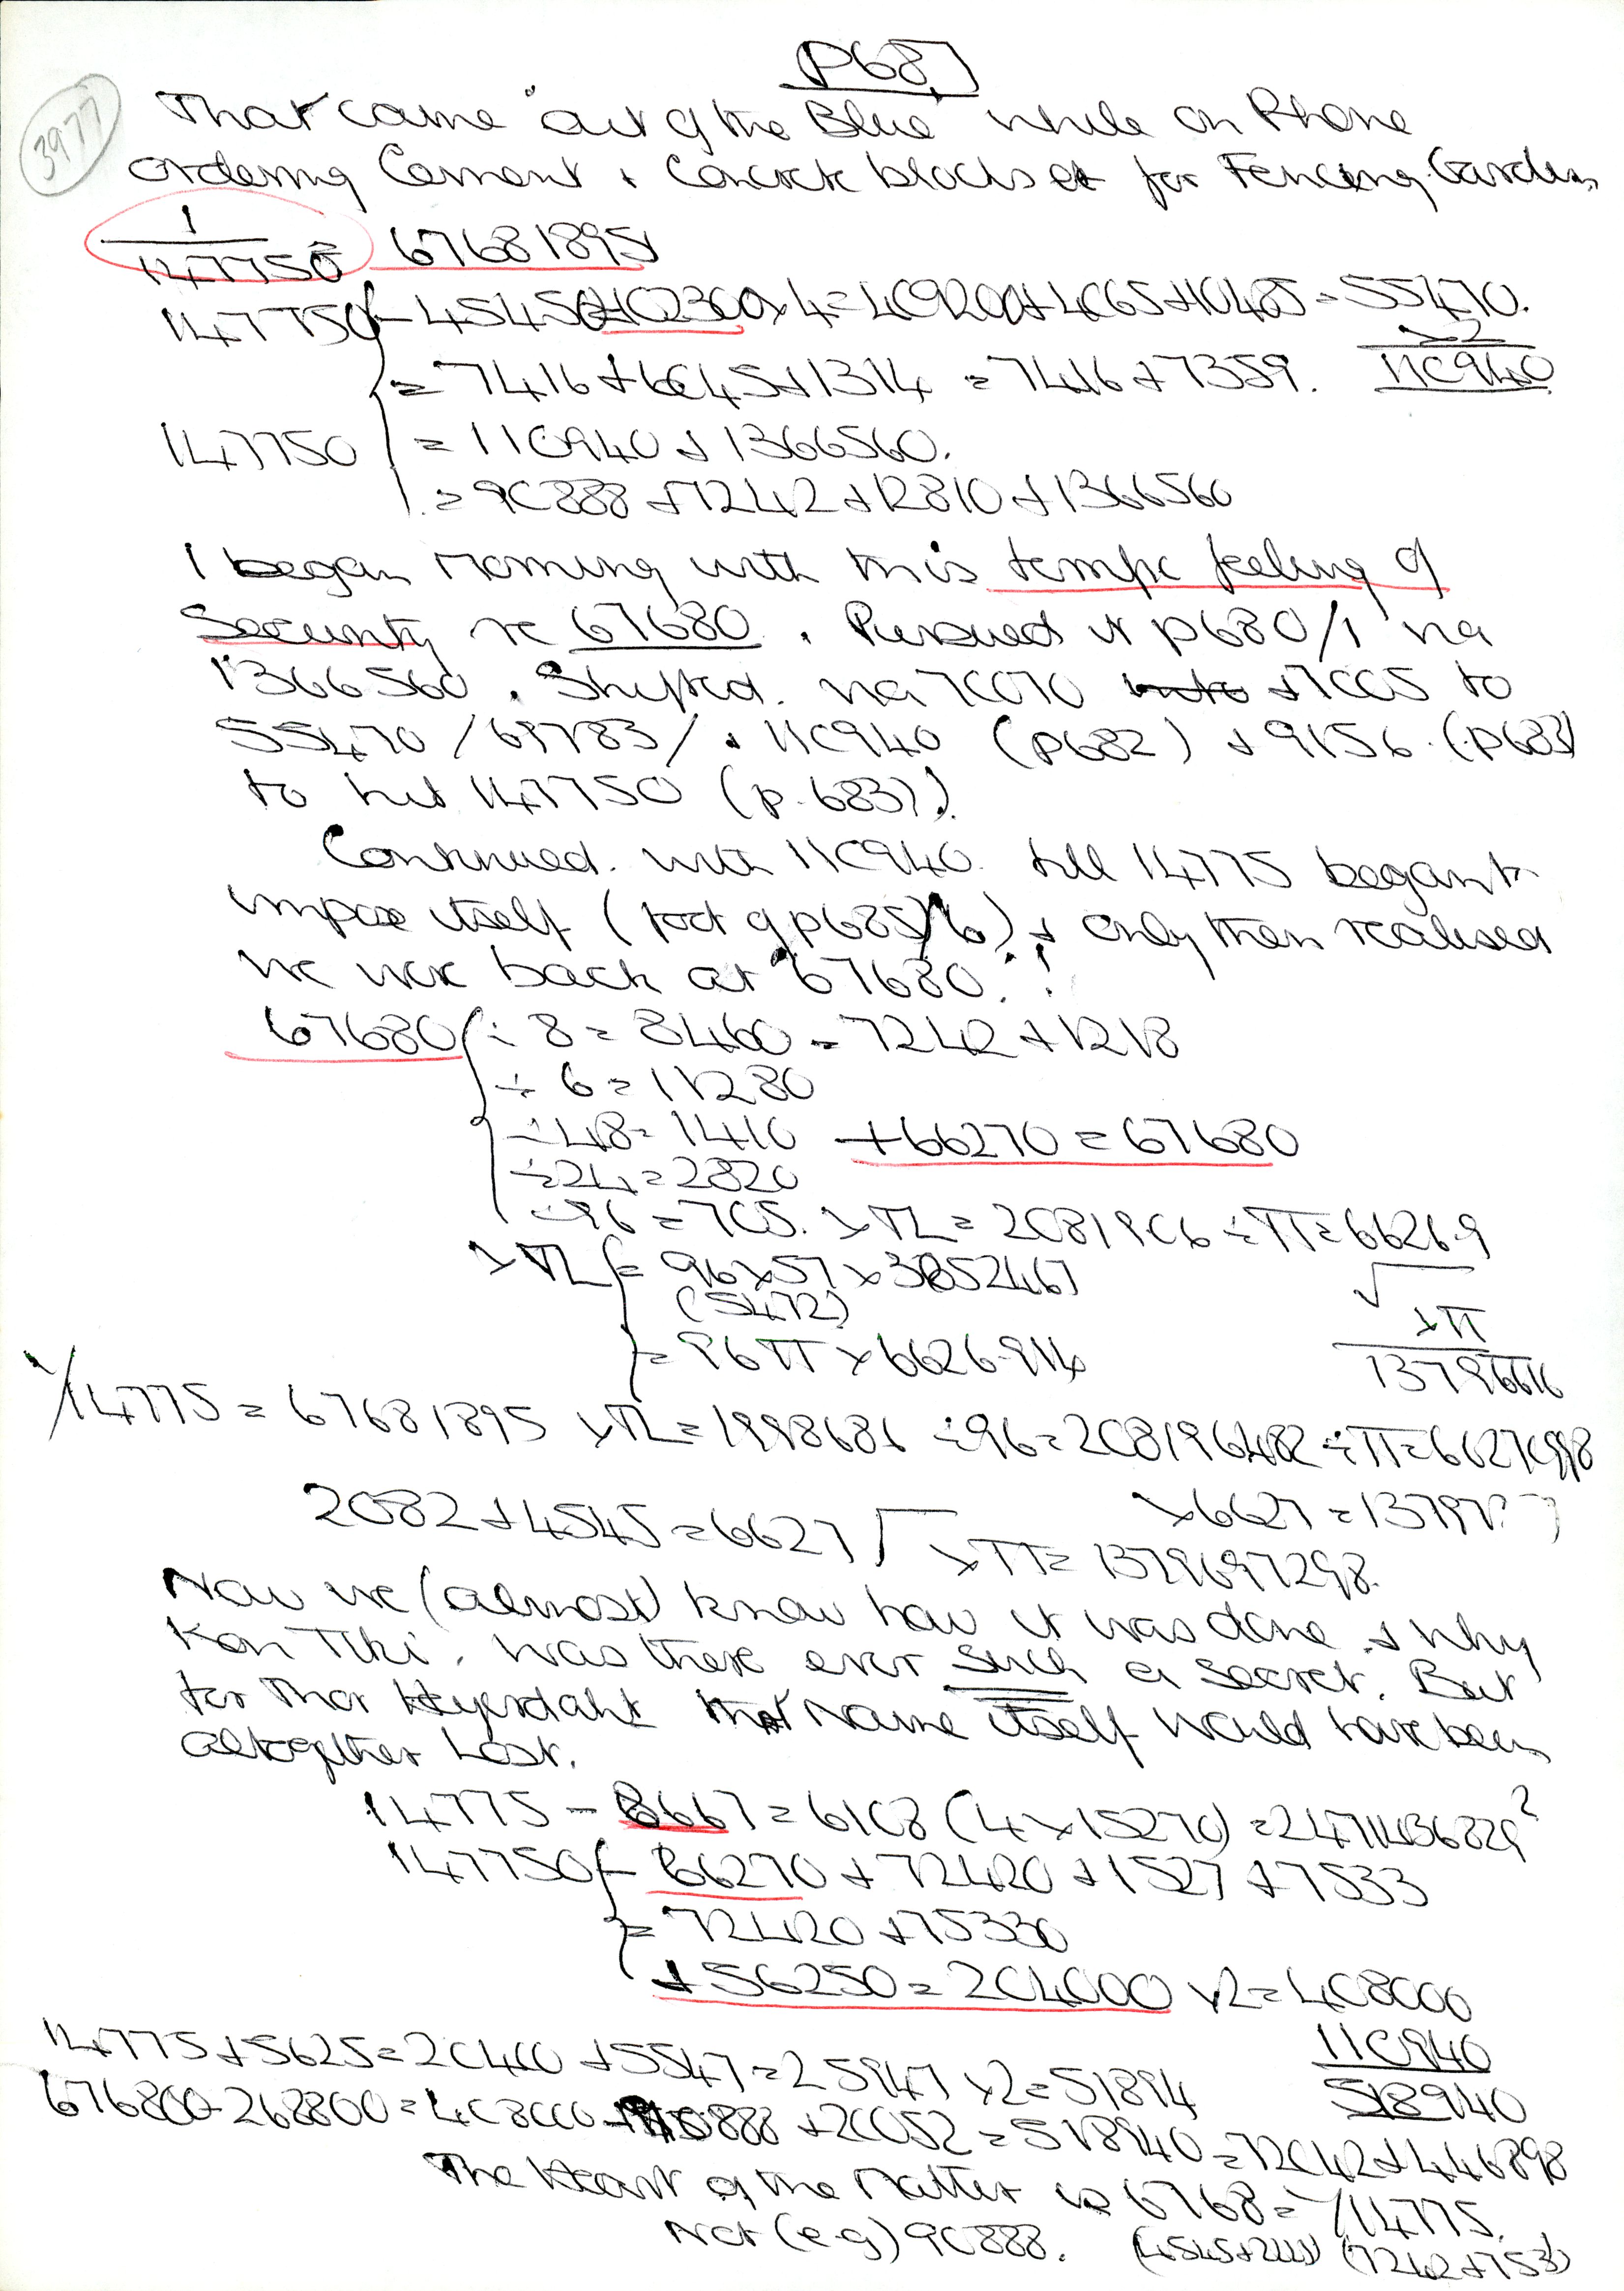 P687
3977
That came "out of the Blue" while on Phone
ordering Cement + Concrete blocks et for Fencing Garden
1/147750 = 67681895
147750 - 45450 = 102300 x 4 = 409200 + 4065 + 10485 = 55470.
x2
= 7416 + 6045 + 1314 = 7416 + 7359. 110940
147750 = 110940 + 1366560.
= 90888 + 7242 + 12810 + 1366560
I began Morning with this
feeling of
Security re 67680. Pursued it p680/1 via
1366560. Shifted. via 70070 + 7005 to
55470 / 69783 / + 110940 (p682) + 9156. (p683)
to hit 147750 (p.683)!
Continued. with 110940. till 14775 began to
impose itself (foot of p685/6) + only then realised
we were back at 67680.!
67680 ÷ 8 = 8460 = 7242 + 1218
÷ 6 = 11280
÷ 48 = 1410 + 66270 = 67680
÷ 24 = 2820
÷ 96 = 705. x TL = 2081906 ÷ π = 66269
x TL = 96 x 57 x 3652467
√
(5472)
x π
= 96 π x 6626.914
13796616
1/14775 = 67681895 x TL = 1998686 ÷ 96 = 208196482 ÷ π = 66270998
2082 + 4545 = 6627 √ x π = 1379697298.
x 6627 = 13797
Now we (almost) know how it was done + why
Kon Tiki. Was there ever such a secret. But
for Thor Heyerdahl that Name itself would have been
altogether Lost.
14775 - 8667 = 6108 (4 x 15270) = 2471436829²
147750 - 66270 + 72420 + 1527 + 7533
= 72420 + 75330
+ 56250 = 204000 x2 = 408000
14775 + 5625 = 20400 + 5547 = 25947 x2 = 51894
110940
518940
676800 - 268800 = 408000 + 90888 + 20052 = 518940 = 72042 + 446898
The Heart of the Matter is 6768 = 1/14775.
Not (e.g) 90888. (7242 + 7533)